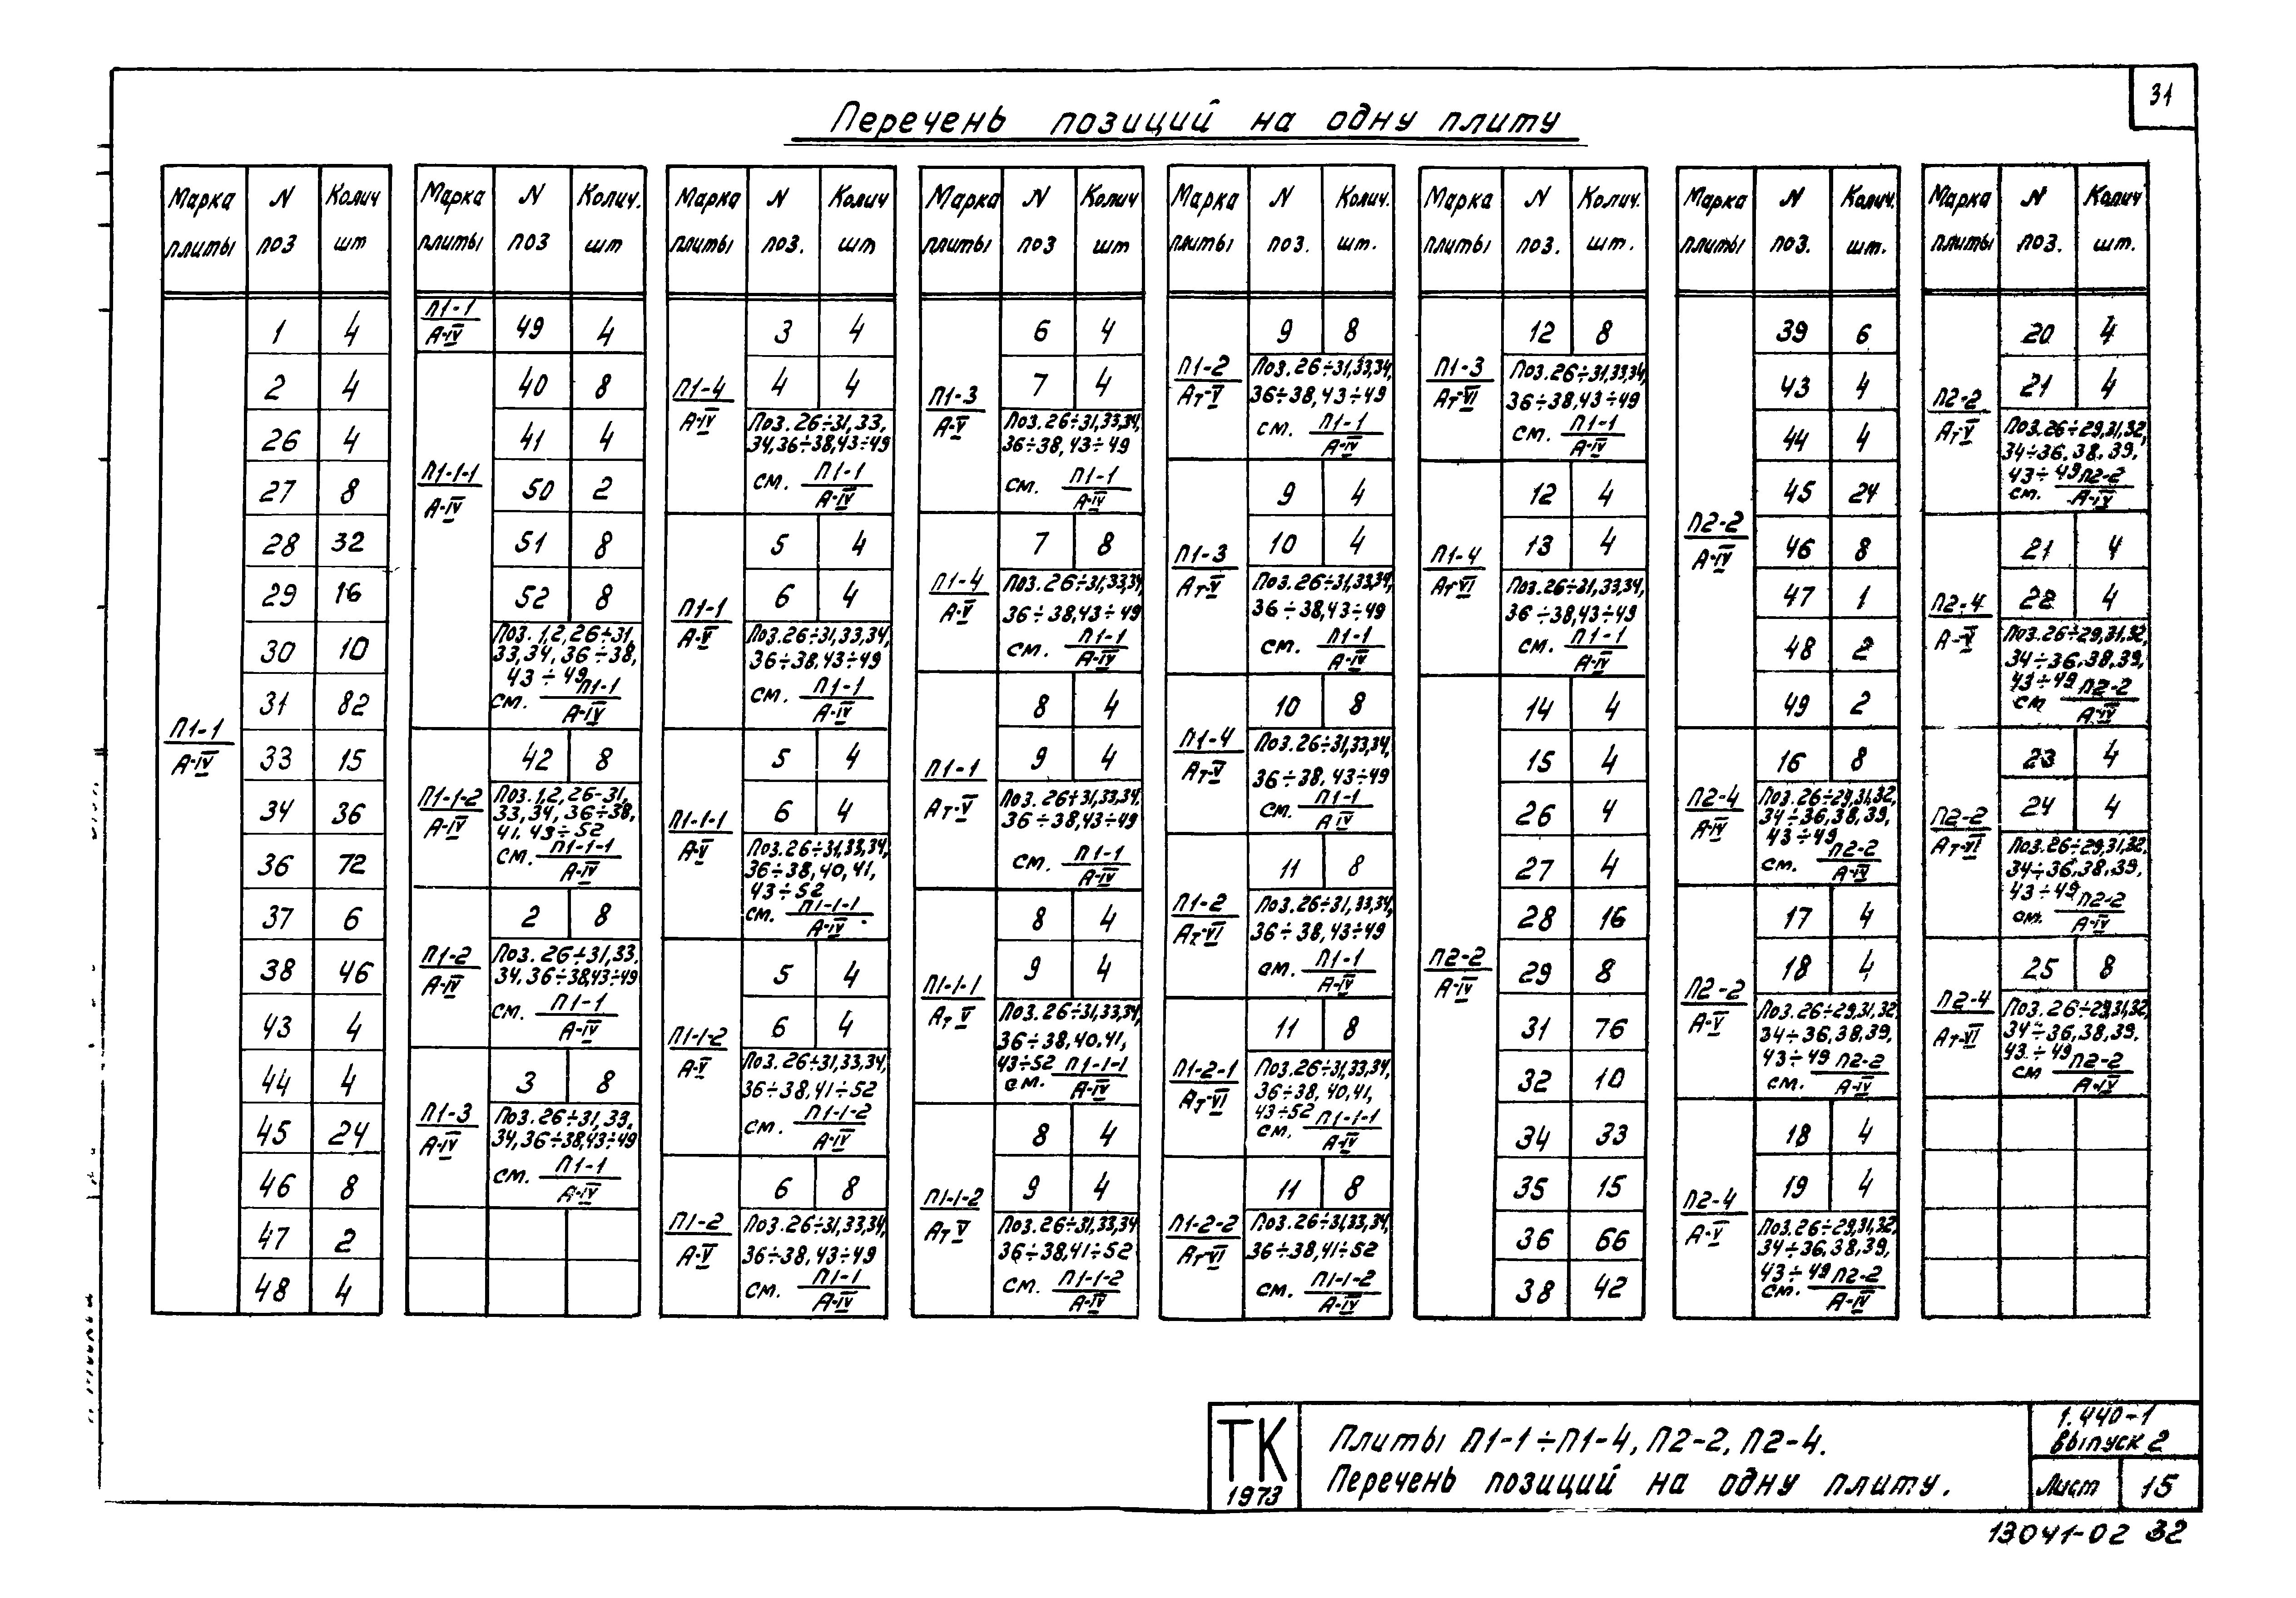 31
Перечень позиций на одну плиту
Марка плиты N поз Колич шт
П1-1
А-IV
1 4
2 4
26 4
27 8
28 32
29 16
30 10
31 82
33 15
34 36
36 72
37 6
38 46
43 4
44 4
45 24
46 8
47 2
48 4
Марка плиты N поз Колич. шт
П1-1
А-IV
49 4
П1-1-1
А-IV
40 8
41 4
50 2
51 8
52 8
Поз. 1,2,26÷31,
33,34,36÷38,
43÷49
см. П1-1
А-IV
П1-1-2
А-IV
42 8
Поз. 1,2,26-31,
33,34,36÷38,
41,43÷52
см. П1-1-1
А-IV
П1-2
А-IV
2 8
Поз. 26÷31,33,
34,36÷38,43÷49
см. П1-1
А-IV
П1-3
А-IV
3 8
Поз. 26÷31,33,
34,36÷38,43÷49
см. П1-1
А-IV
Марка плиты N поз. Колич шт
П1-4
А-IV
3 4
4 4
Поз. 26÷31,33,
34,36÷38,43÷49
см. П1-1
А-IV
П1-1
А-V
5 4
6 4
Поз.26÷31,33,34,
36÷38,43÷49
см. П1-1
А-IV
П1-1-1
А-V
5 4
6 4
Поз.26÷31,33,34,
36÷38,40,41,
43÷52
см. П1-1-1
А-IV
П1-1-2
А-V
5 4
6 4
Поз. 26÷31,33,34,
36÷38,41÷52
см. П1-1-2
А-IV
П1-2
А-V
6 8
Поз.26÷31,33,34,
36÷38,43÷49
см. П1-1
А-IV
Марка плиты N поз Колич шт
П1-3
А-V
6 4
7 4
Поз.26÷31,33,34,
36÷38,43÷49
см. П1-1
А-IV
П1-4
А-V
7 8
Поз.26÷31,33,34,
36÷38,43÷49
см. П1-1
А-IV
П1-1
Ат-V
8 4
9 4
Поз. 26÷31,33,34,
36÷38,43÷49
см. П1-1
А-IV
П1-1-1
Ат V
8 4
9 4
Поз.26÷31,33,34,
36÷38,40,41,
43÷52
см. П1-1-1
А-IV
П1-1-2
Ат V
8 4
9 4
Поз.26÷31,33,34
36÷38,41÷52
см. П1-1-2
А-IV
Марка плиты N поз. Колич. шт.
П1-2
Ат-V
9 8
Поз.26÷31,33,34,
36÷38,43÷49
см. П1-1
А-IV
П1-3
Ат-V
9 4
10 4
Поз.26÷31,33,34,
36÷38,43÷49
см. П1-1
А-IV
П1-4
Ат-V
10 8
Поз.26÷31,33,34,
36÷38,43÷49
см. П1-1
А IV
П1-2
Ат-VI
11 8
Поз.26÷31,33,34,
36÷38,43÷49
см. П1-1
А-IV
П1-2-1
Ат-VI
11 8
Поз.26÷31,33,34,
36÷38, 40,41,
43÷52
см. П1-1-1
А-IV
П1-2-2
Ат-VI
11 8
Поз.26÷31,33,34,
36÷38,41÷52
см. П1-1-2
А-IV
Марка плиты N поз. Колич. шт.
П1-3
Ат-VI
12 8
Поз.26÷31,33,34,
36÷38,43÷49
см. П1-1
А-IV
П1-4
Ат VI
12 4
13 4
Поз.26÷31,33,34,
36÷38,43÷49
см. П1-1
А-IV
П2-2
А-IV
14 4
15 4
26 4
27 4
28 16
29 8
31 76
32 10
34 33
35 15
36 66
38 42
Марка плиты N поз. Колич. шт.
П2-2
А-IV
39 6
43 4
44 4
45 24
46 8
47 1
48 2
49 2
П2-4
А-IV
16 8
Поз.26÷29,31,32,
34÷36,38,39,
43÷49
см. П2-2
А-IV
П2-2
А-V
17 4
18 4
Поз.26÷29,31,32,
34÷36,38,39,
43÷49
см. П2-2
А-IV
П2-4
А-V
18 4
19 4
Поз.26÷29,31,32,
34÷36,38,39,
43÷49
см. П2-2
А-IV
Марка плиты N поз. Колич шт.
П2-2
Ат-V
20 4
21 4
Поз.26÷29,31,32,
34÷36,38,39,
43÷49
см. П2-2
А-IV
П2-4
А-V
21 4
22 4
Поз.26÷29,31,32,
34÷36,38,39,
43÷49
см П2-2
А-IV
П2-2
Ат-VI
23 4
24 4
Поз.26÷29,31,32,
34÷36,38,39,
43÷49
см. П2-2
А-IV
П2-4
Ат-VI
25 8
Поз.26÷29,31,32,
34÷36,38,39,
43÷49
см П2-2
А-IV
ТК
1973
Плиты П1-1÷П1-4, П2-2, П2-4.
Перечень позиций на одну плиту.
1.440-1
выпуск 2
Лист 15
13041-02 32